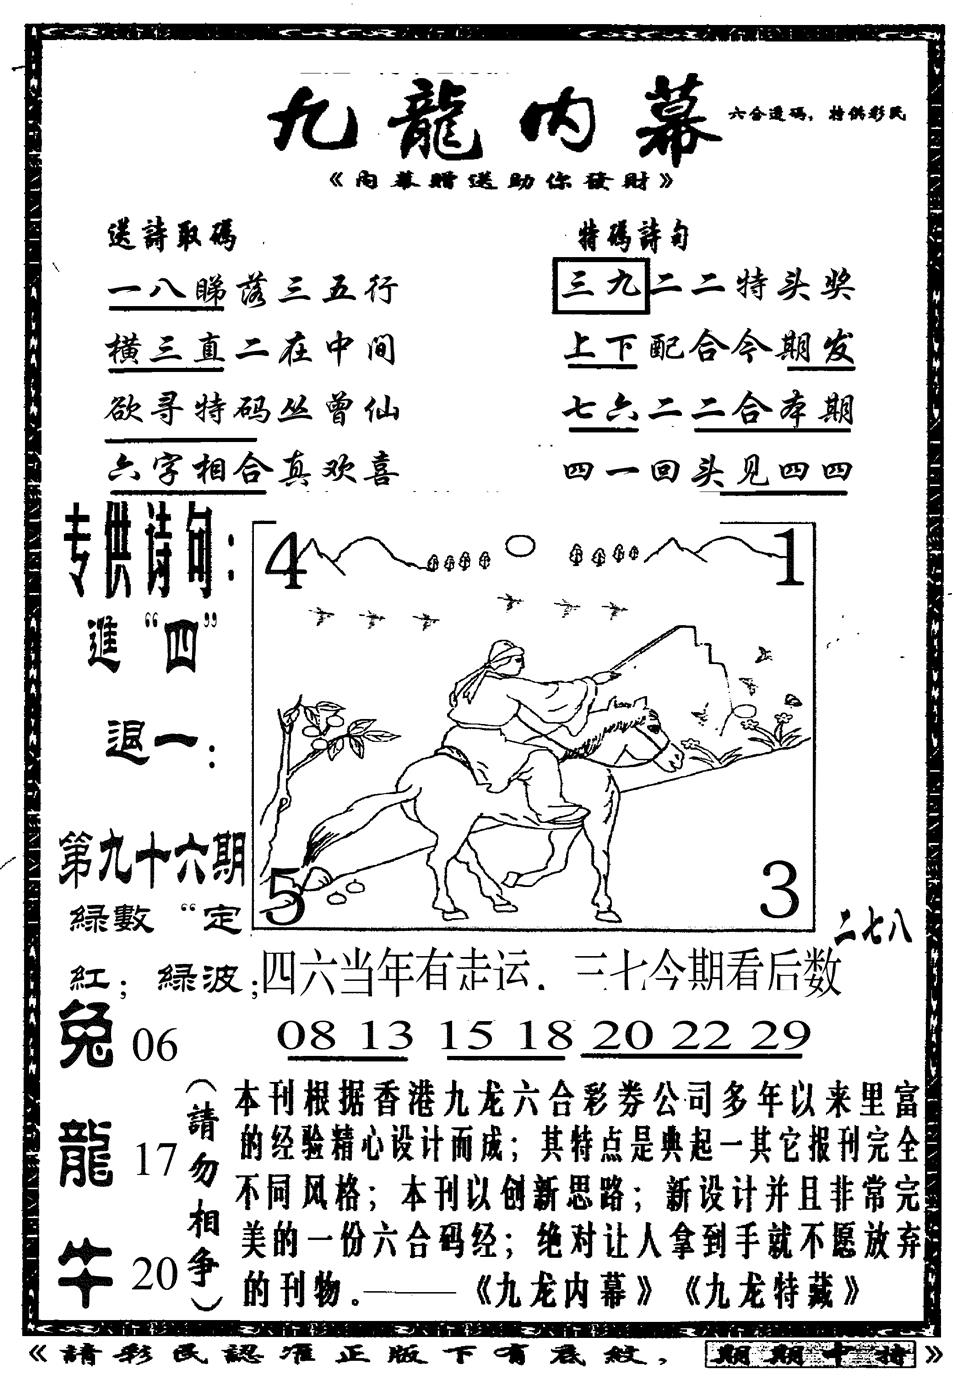 九龍内幕
六合透码，特供彩民
《内幕赠送助你發财》
送詩取碼
一八睇落三五行
横三直二在中间
欲寻特码丛曾仙
六字相合真欢喜
特碼詩句
三九二二特头奖
上下配合今期发
七六二二合本期
四一回头见四四
专供诗句：
進“四”
退一：
第九十六期
緑數“定
紅；緑波；
4
1
5
3
二七八
四六当年有走运．三七今期看后数
08 13 15 18 20 22 29
兔 06
龍 17
牛 20
（請勿相争）
本刊根据香港九龙六合彩券公司多年以来里富
的经验精心设计而成；其特点是典起一其它报刊完全
不同风格；本刊以创新思路；新设计并且非常完
美的一份六合码经；绝对让人拿到手就不愿放弃
的刊物。——《九龙内幕》《九龙特藏》
《請彩民認准正版下有底紋，期期中特》